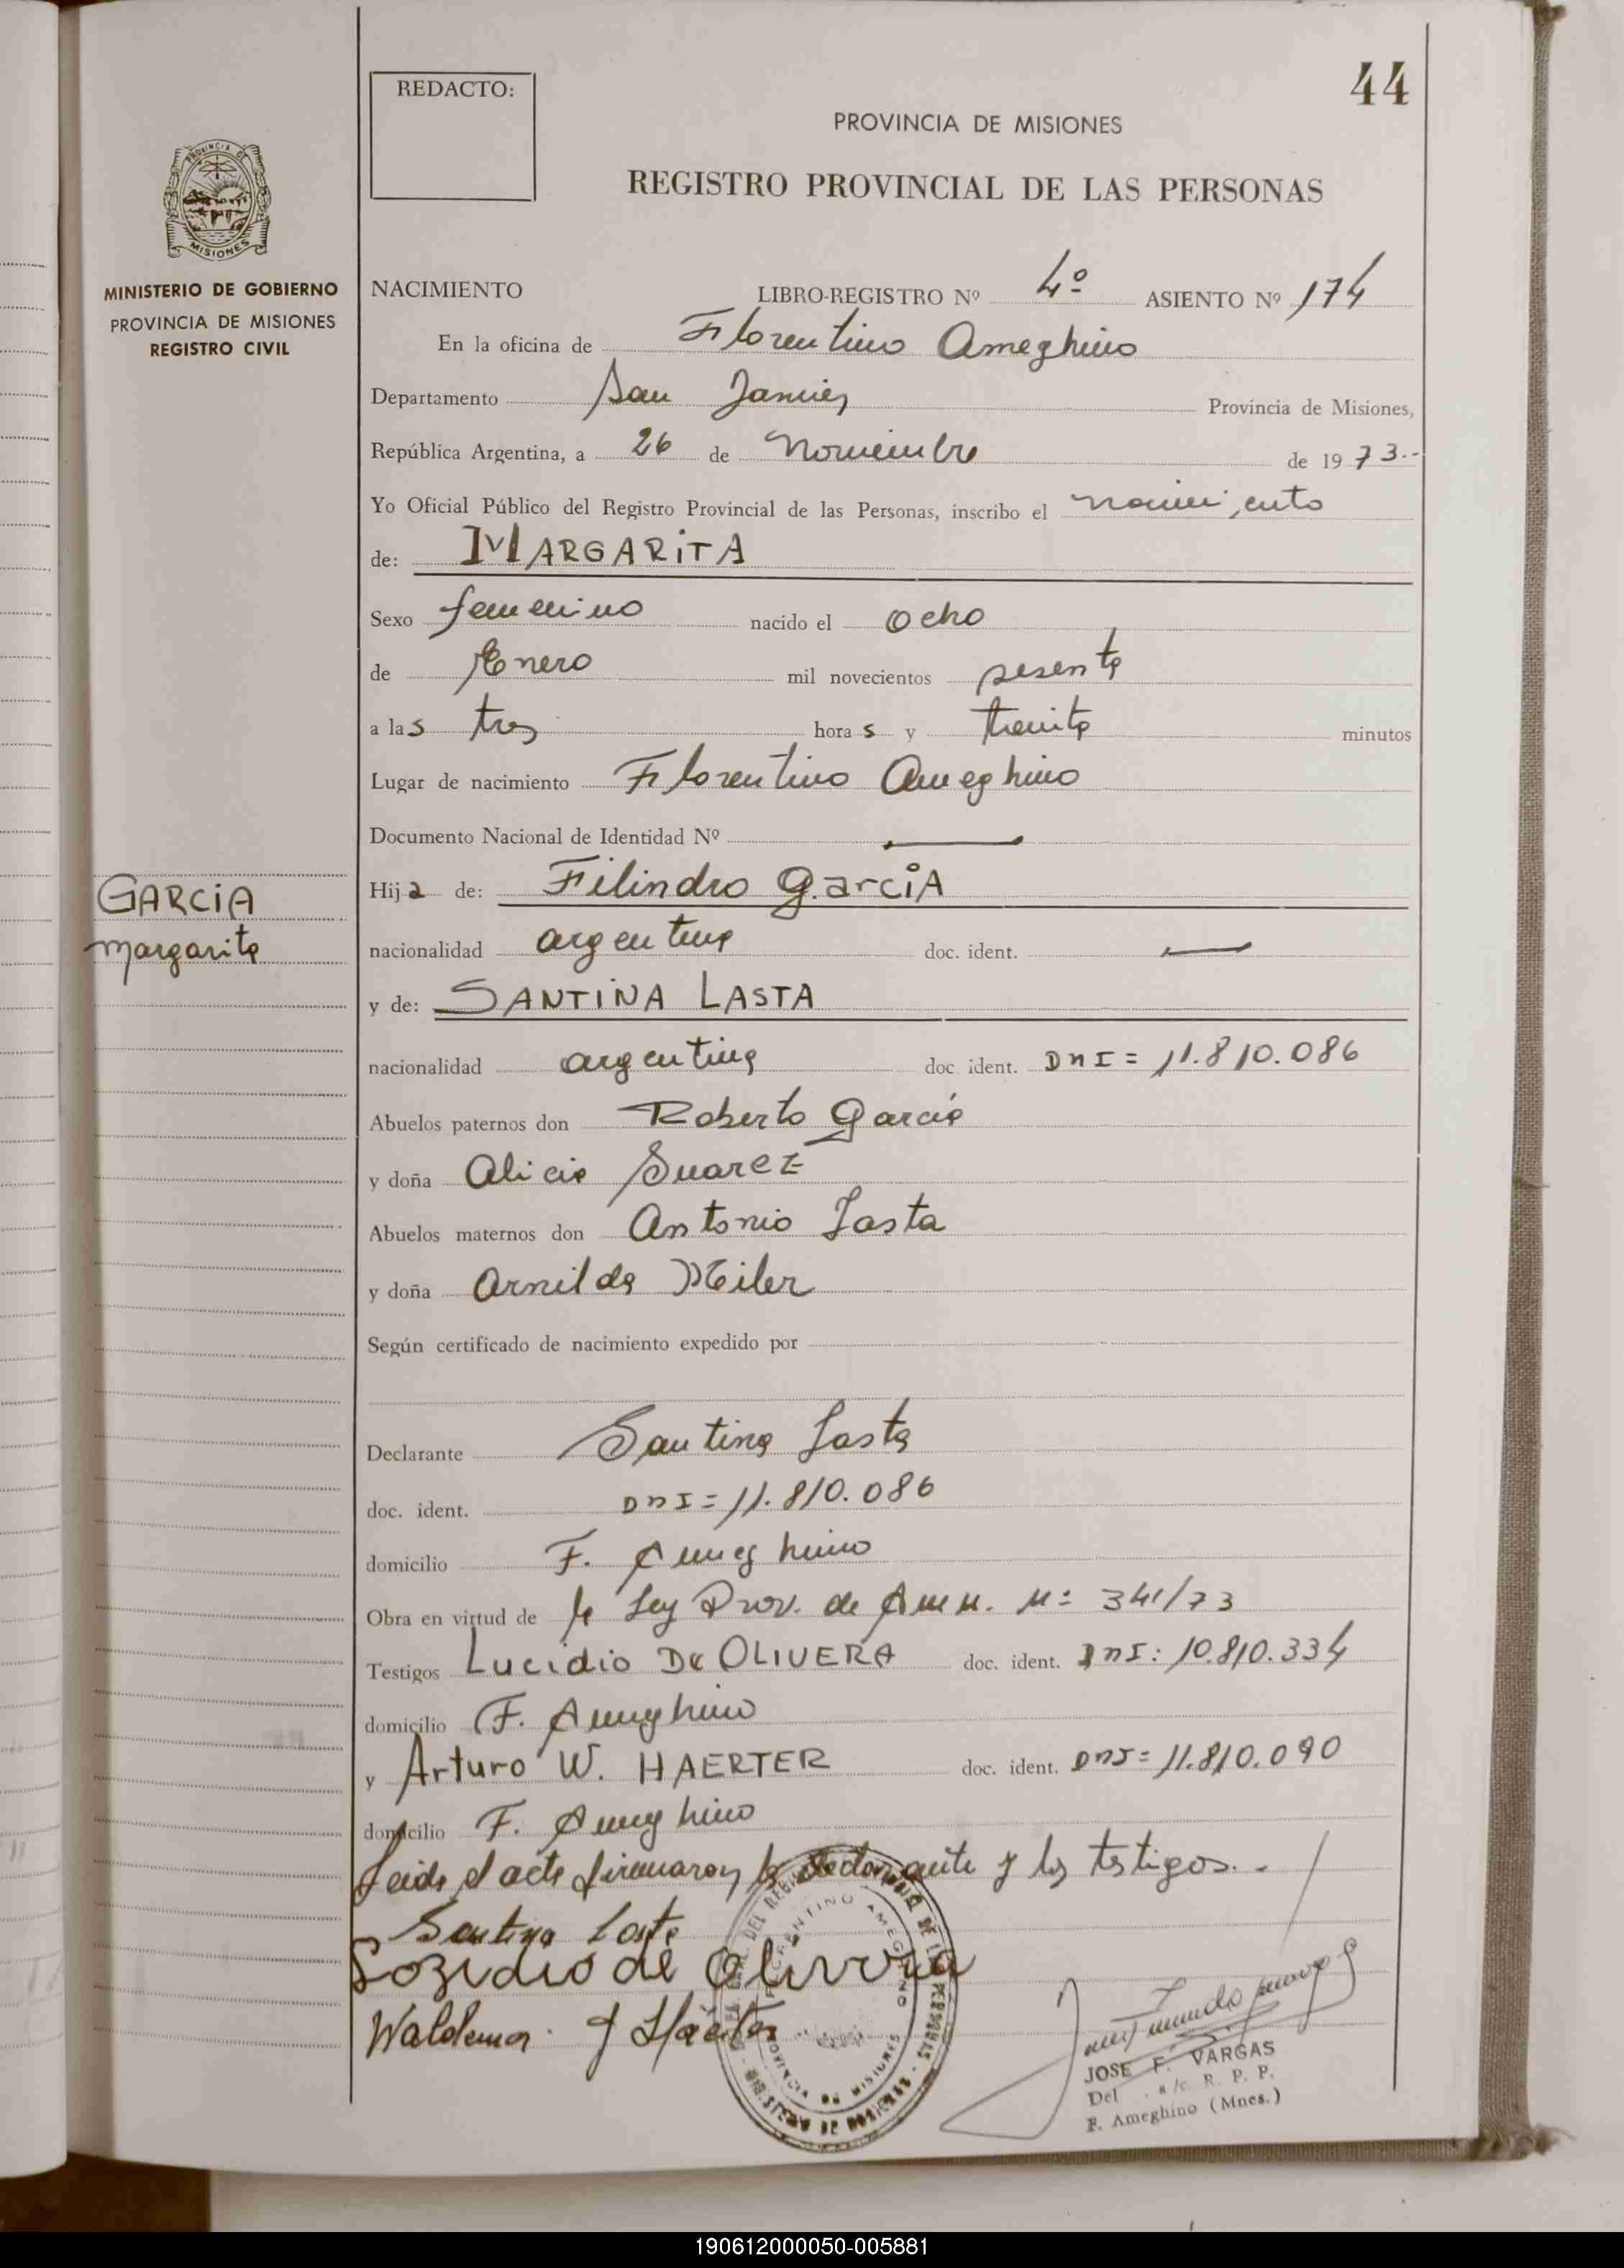 44
REDACTO:
PROVINCIA DE MISIONES
REGISTRO PROVINCIAL DE LAS PERSONAS
MISIONES
MINISTERIO DE GOBIERNO
PROVINCIA DE MISIONES
REGISTRO CIVIL
NACIMIENTO LIBRO-REGISTRO Nº 4º ASIENTO Nº 174
En la oficina de Florentino Ameghino
Departamento San Javier Provincia de Misiones,
República Argentina, a 26 de Noviembre de 1973.-
Yo Oficial Público del Registro Provincial de las Personas, inscribo el nacimiento
de: MARGARITA
Sexo femenino nacido el Ocho
de Enero mil novecientos sesenta
a las tres horas y treinta minutos
Lugar de nacimiento Florentino Ameghino
Documento Nacional de Identidad Nº —
GARCIA
Margarita
Hija de: Filindro Garcia
nacionalidad argentina doc. ident. —
y de: SANTINA LASTA
nacionalidad argentina doc. ident. DNI = 11.810.086
Abuelos paternos don Roberto Garcia
y doña Alicia Suarez
Abuelos maternos don Antonio Lasta
y doña Arnilda Meiler
Según certificado de nacimiento expedido por
Declarante Santina Lasta
doc. ident. DNI = 11.810.086
domicilio F. Ameghino
Obra en virtud de la Ley Prov. de Amn. Nº 341/73
Testigos Lucidio De OLIVERA doc. ident. DNI: 10.810.334
domicilio F. Ameghino
y Arturo W. HAERTER doc. ident. DNI = 11.810.090
domicilio F. Ameghino
Leida el acta firmaron la declarante y los testigos.-
Santina Lasta
de Olivera
Waldemar
JOSE F. VARGAS
Del. a/c. R. P. P.
F. Ameghino (Mnes.)
190612000050-005881